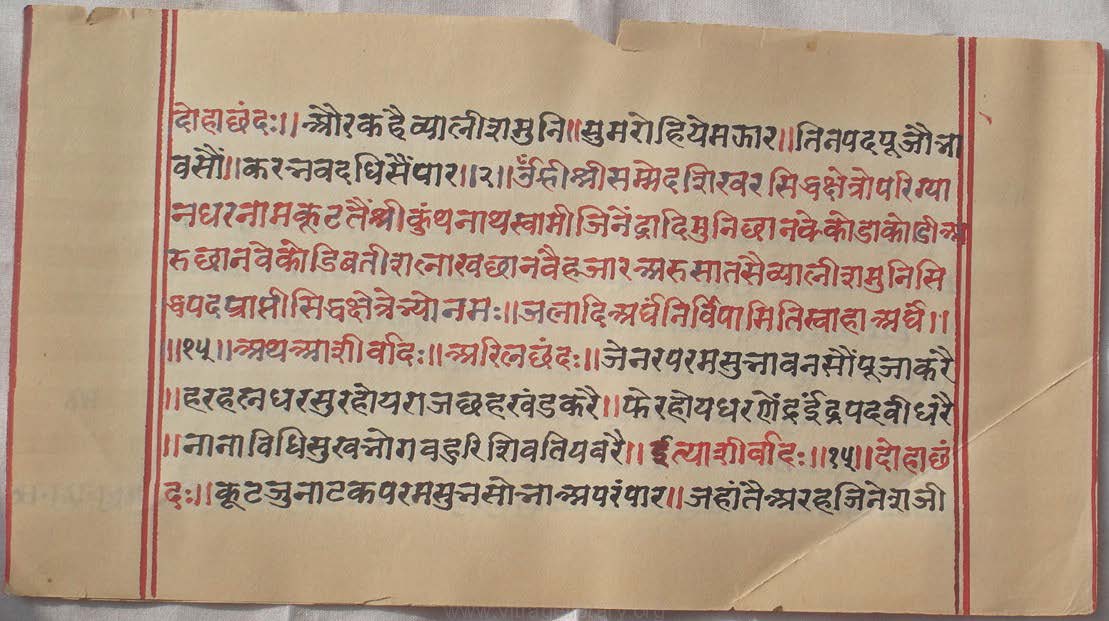 दोहाछंदः।।औरकहैव्यालीशमुनि।।सुमरोहियेमझार।।तिनपदपूजौभा
वसौं।।करभवदधिसैंपार।।२।।ॐह्रीश्रीसम्मेदशिखरसिद्धक्षेत्रोपरिग्या
नधरनामकूटतैंश्रीकुंथनाथस्वामीजिनेंद्रादिमुनिछानवेकोडाकोडीअ
रुछानवेकोडिबतीशलाखछानवैहजारअरुसातसैव्यालीशमुनिसि
द्धपदप्राप्तीसिद्धक्षेत्रेभ्योनमः।।जलादिअर्घंनिर्विपामितिस्वाहाअर्घं।।
।।१५।।अथआशीर्वादः।।अरिलछंदः।।जेनरपरमसुभावनसौंपूजाकरै
।।हरहलधरसुरहोयराजछहखंडकरै।।फेरहोयधरणेंद्रइंद्रपदवीधरै
।।नानाविधिसुखभोगवहुरिशिवतियवरै।।ईत्याशीर्वादः।।१५।।दोहाछं
दः।।कूटजुनाटकपरमसुभसोभाअपरंपार।।जहांतैअरहजिनेशजी
www.vitragvani.org